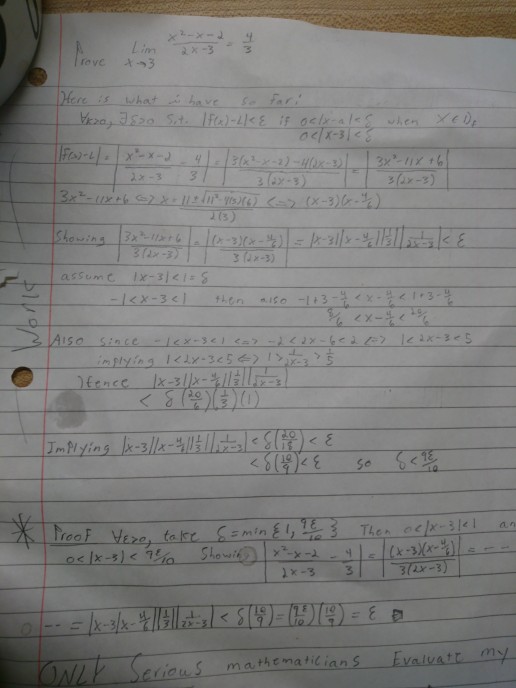 Prove Lim x→3 (x²-x-2)/(2x-3) = 4/3
Here is what i have so far:
∀ε>0, ∃δ>0 s.t. |F(x)-L|<ε if 0<|x-a|<δ when x∈D_f
0<|x-3|<δ
|F(x)-L| = |(x²-x-2)/(2x-3) - 4/3| = |(3(x²-x-2)-4(2x-3))/(3(2x-3))| = |(3x²-11x+6)/(3(2x-3))|
3x²-11x+6 <=> x = (11±√(11²-4(3)(6)))/(2(3)) <=> (x-3)(x-4/6)
Showing |(3x²-11x+6)/(3(2x-3))| = |((x-3)(x-4/6))/(3(2x-3))| = |x-3||x-4/6||1/3||1/(2x-3)| < ε
assume |x-3|<1=δ
-1<x-3<1 then also -1+3-4/6 < x-4/6 < 1+3-4/6
8/6 < x-4/6 < 20/6
Also since -1<x-3<1 <=> -2<2x-6<2 <=> 1<2x-3<5
implying 1<2x-3<5 <=> 1 > 1/(2x-3) > 1/5
Hence |x-3||x-4/6||1/3||1/(2x-3)|
< δ(20/6)(1/3)(1)
Implying |x-3||x-4/6||1/3||1/(2x-3)| < δ(20/18) < ε
< δ(10/9) < ε so δ < 9ε/10
* Proof ∀ε>0, take δ = min{1, 9ε/10} Then 0<|x-3|<1 an
0<|x-3| < 9ε/10 Showing |(x²-x-2)/(2x-3) - 4/3| = |((x-3)(x-4/6))/(3(2x-3))| = ---
--- = |x-3||x-4/6||1/3||1/(2x-3)| < δ(10/9) = (9ε/10)(10/9) = ε
ONLY Serious mathematicians Evaluate my
Work